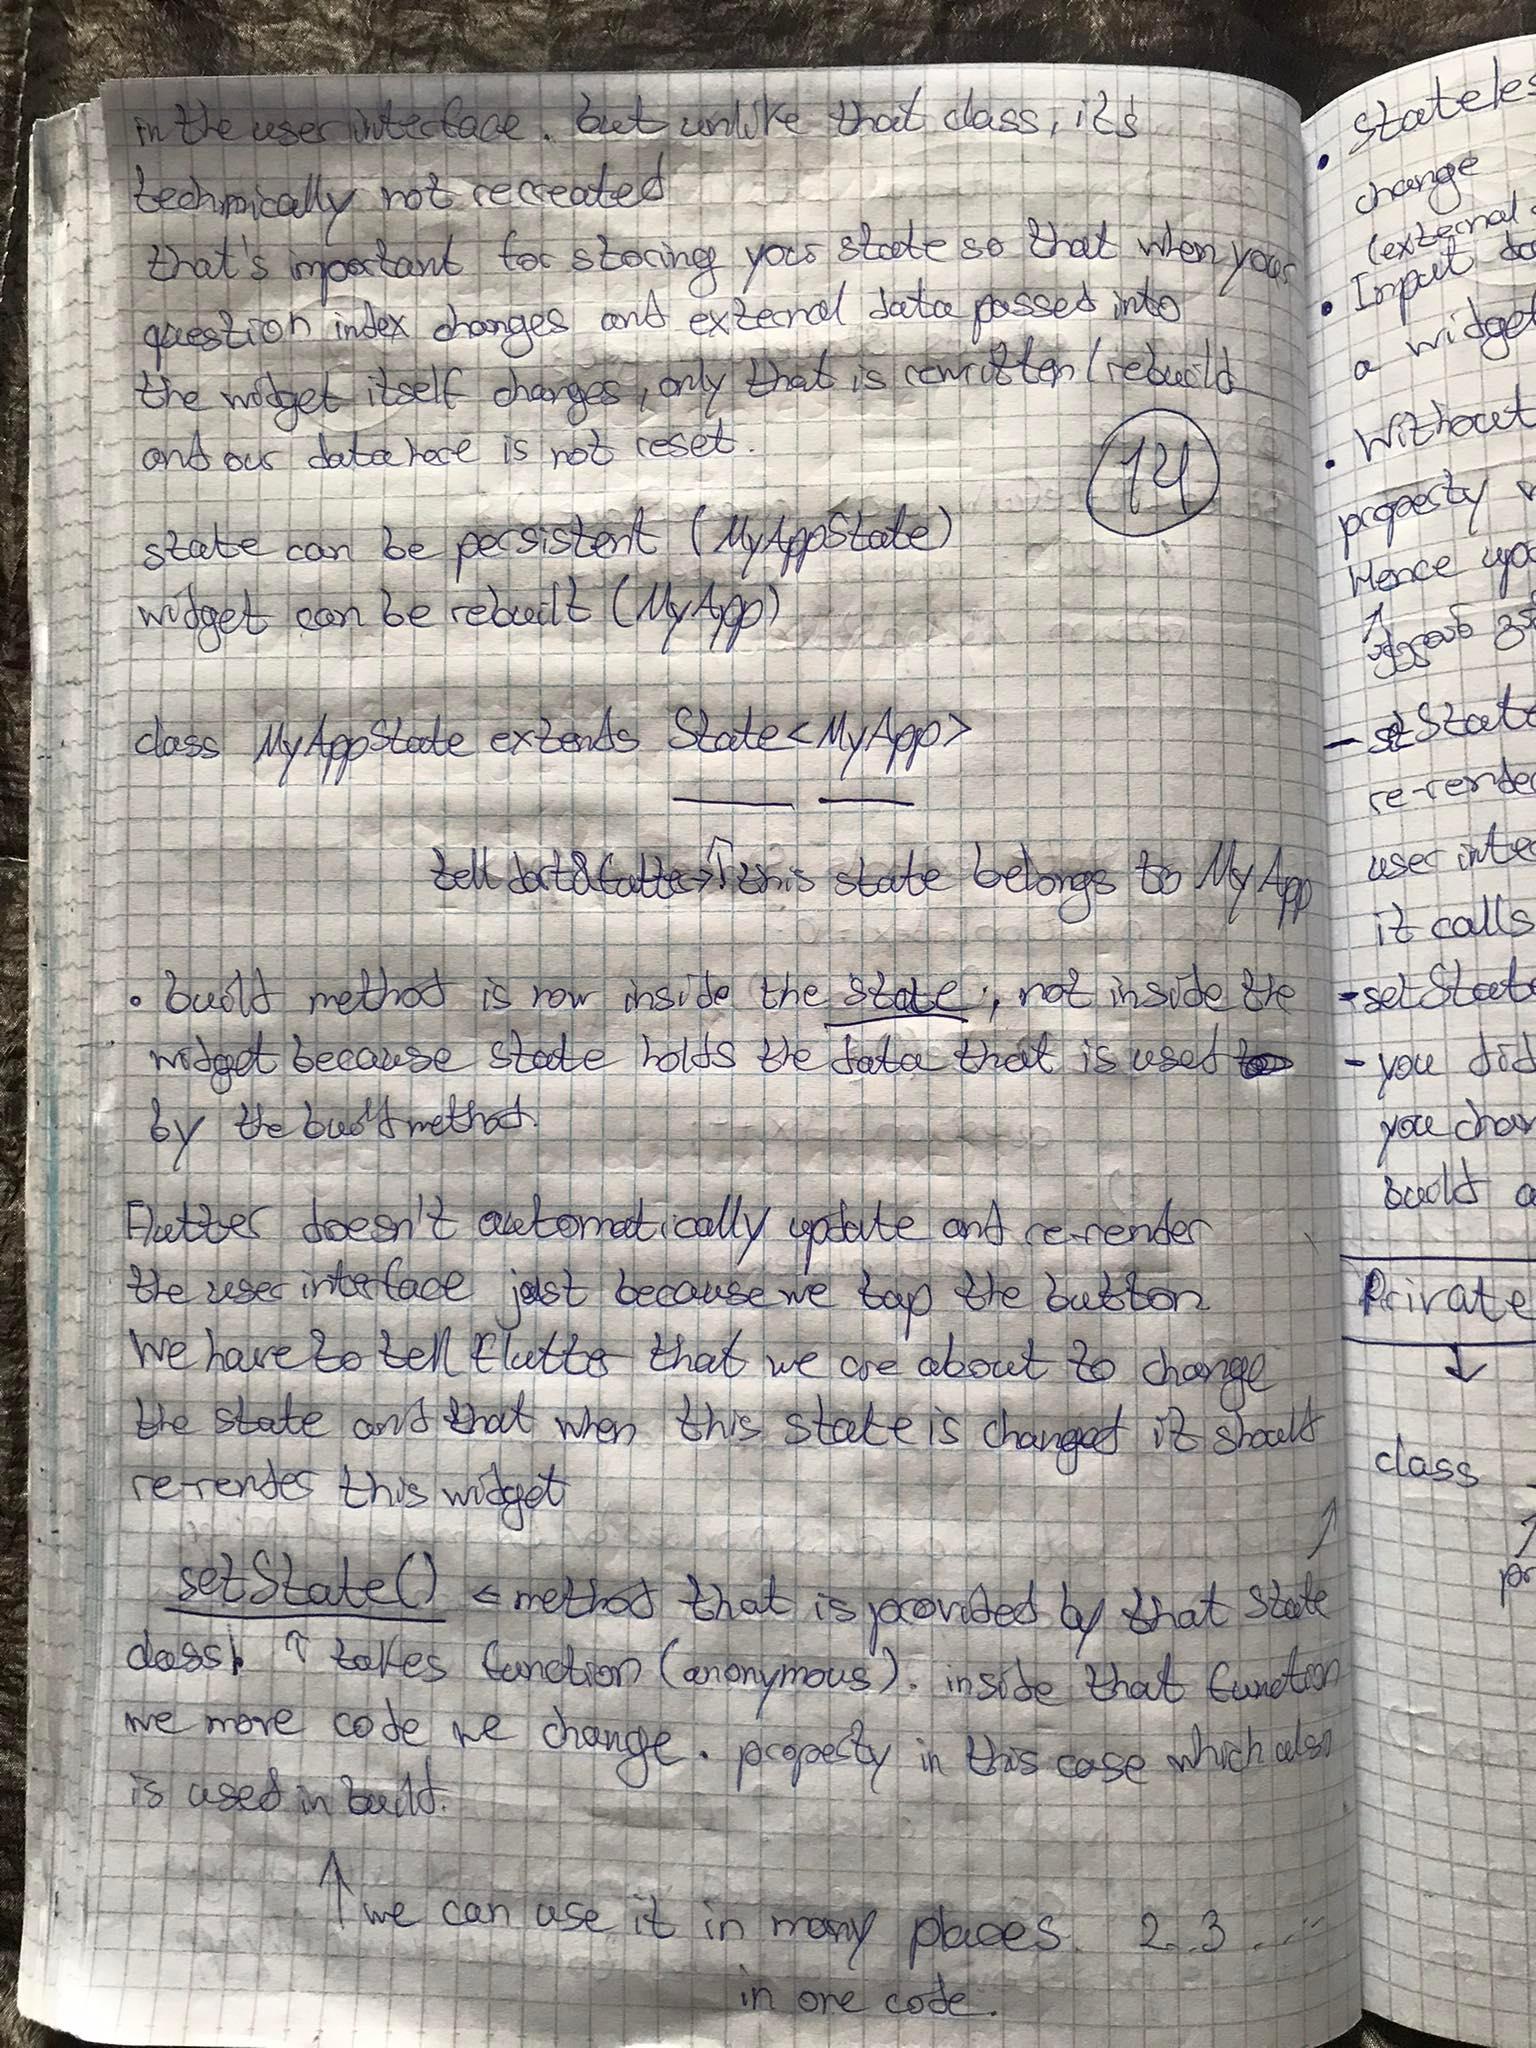 in the user interface. but unlike that class, it's
technically not recreated
that's important for storing your state so that when your
question index changes and external data passed into
the widget itself changes, only that is rewritten / rebuild
and our data here is not reset.
14
state can be persistent (MyAppState)
widget can be rebuilt (MyApp)
class MyAppState extends State<MyApp>
tell dart & flutter ↑ this state belongs to MyApp
• build method is now inside the state, not inside the
widget because state holds the data that is used
by the build method.
Flutter doesn't automatically update and re-render
the user interface just because we tap the button
We have to tell Flutter that we are about to change
the state and that when this state is changed it should
re-render this widget
setState() ← method that is provided by that State
class. ↑ takes function (anonymous). inside that function
we move code we change. property in this case which also
is used in build.
↑ we can use it in many places. 2..3 ...
in one code.
• Stateles
change
(external
• Input da
a widget
• Without
property
Hence upo
↑
- setState
re-render
user inte
it calls
- setState
- you did
you chan
build a
Private
↓
class
↑
pr